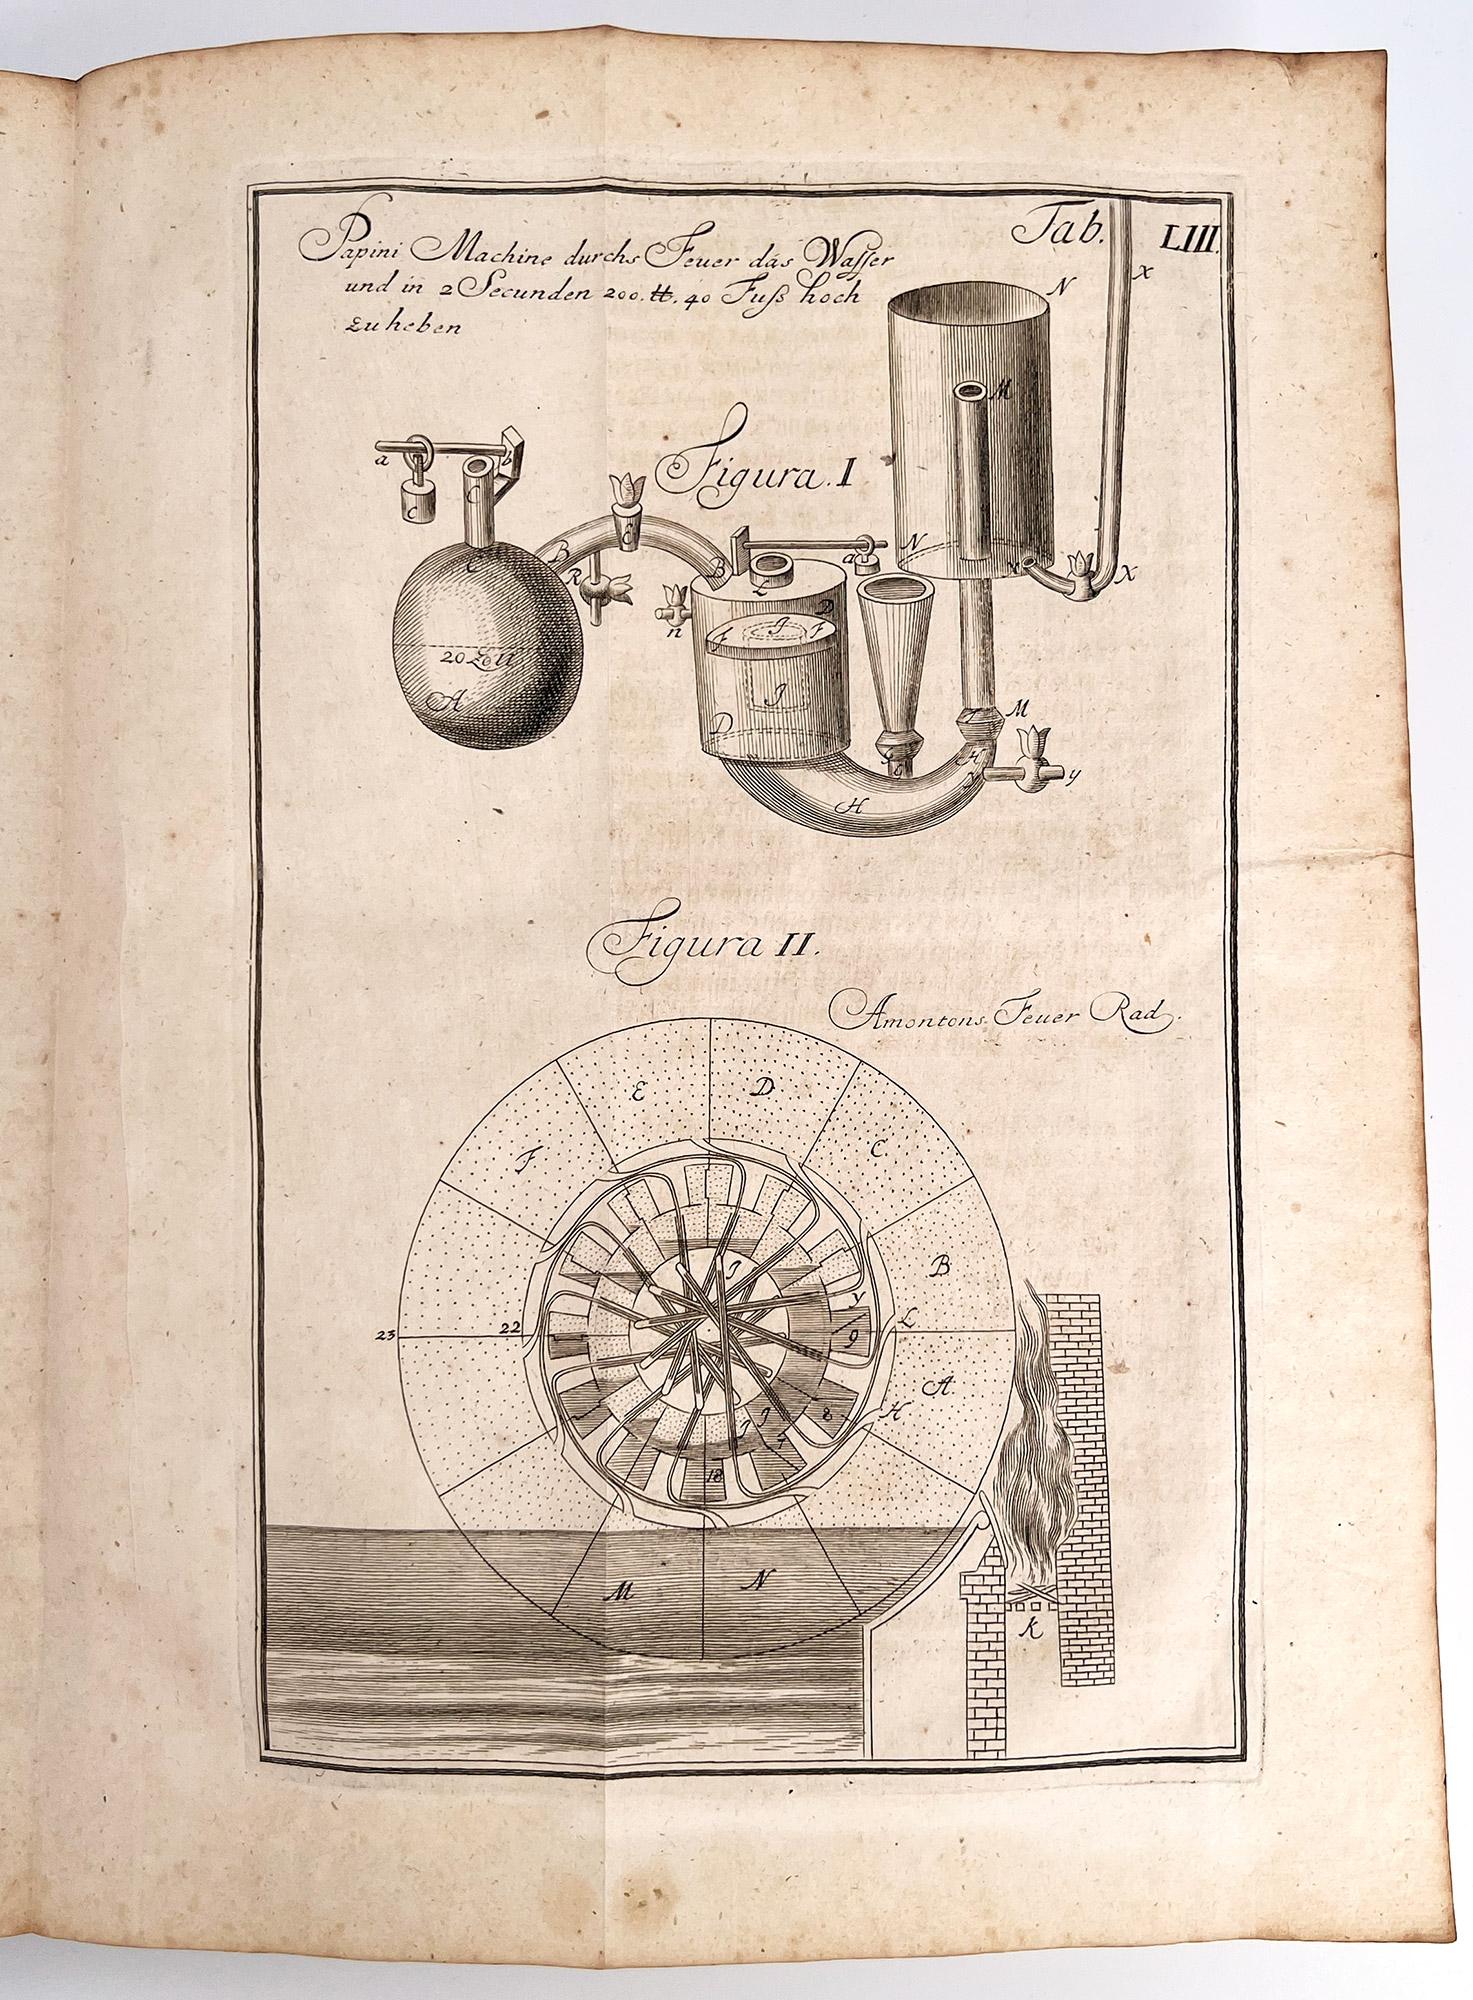 Tab. LIII.
Papini Machine durchs Feuer das Wasser
und in 2 Secunden 200. ℔. 40 Fuß hoch
zu heben
X
N
M
Figura. I
a
b
C
c
C
E
B
R
B
L
a
N
X
n
D
F
J
F
20 Zoll
J
A
D
M
H
y
H
Figura II.
Amontons Feuer Rad.
E
D
F
C
B
J
y
23
22
L
9
A
8
H
J
J
7
18
M
N
K